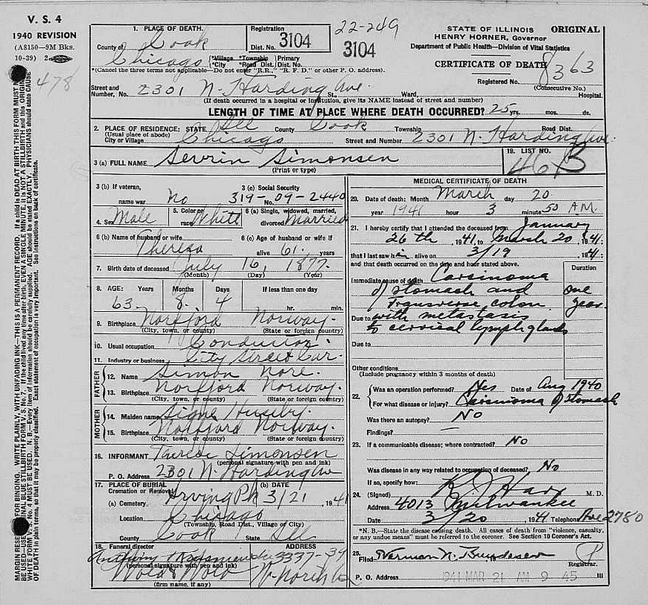 V. S. 4
1940 REVISION
(A8150—9M Bks.
10-39)
478
1. PLACE OF DEATH.
County of Cook
Chicago
*Village *Township *Primary
*City *Road Dist. Dist. No.
*(Cancel the three terms not applicable—Do not enter "R.R.," "R. F. D." or other P. O. address.)
Registration
Dist. No. 3104
3104
22-249
STATE OF ILLINOIS ORIGINAL
HENRY HORNER, Governor
Department of Public Health—Division of Vital Statistics
CERTIFICATE OF DEATH
Registered No. 8363
(Consecutive No.)
Street and
Number, No. 2301 N. Harding Ave. St., Ward, Hospital.
(If death occurred in a hospital or institution, give its NAME instead of street and number)
LENGTH OF TIME AT PLACE WHERE DEATH OCCURRED? 25 yrs.
2. PLACE OF RESIDENCE: STATE Ill County Cook Township Road Dist.
City or Village Chicago Street and Number 2301 N. Harding Ave.
3 (a) FULL NAME Sevrin Simonsen
(Print or type)
19. LIST NO.
46B
3 (b) If veteran,
name war No
3 (c) Social Security
No. 319-09-2440
4. Sex Male
5. Color or
race White
6 (a) Single, widowed, married,
divorced Married
6 (b) Name of husband or wife
Theresa
6 (c) Age of husband or wife if
alive 61 years
7. Birth date of deceased July 16, 1877
(Month) (Day) (Year)
8. AGE: Years Months Days If less than one day
63 8 4 hr. min.
9. Birthplace Norfford Norway.
(City, town, or county) (State or foreign country)
10. Usual occupation Conductor
11. Industry or business City Street Car.
FATHER
12. Name Simon Nore.
13. Birthplace Norfford Norway.
(City, town, or county) (State or foreign country)
MOTHER
14. Maiden name Signe Huseby.
15. Birthplace Norfford Norway.
(City, town, or county) (State or foreign country)
16. INFORMANT Theresa Simonsen
(personal signature with pen and ink)
P. O. Address 2301 N. Harding Ave
17. PLACE OF BURIAL
Cremation or Removal
(b) DATE
(a) Cemetery Irving Pk 3/21 1941
Location Chicago
(Township, Road Dist., Village or City)
County Cook State Ill
18. Funeral director ADDRESS
3337-39
(personal signature with pen and ink)
Wold & Wold W. North Av
(firm name, if any)
MEDICAL CERTIFICATE OF DEATH
20. Date of Death: Month March day 20
year 1941 hour 3 minute 50 A.M.
21. I hereby certify that I attended the deceased from January
26th, 1941 to March 20, 1941
that I last saw him alive on 3/19 1941
and that death occurred on the date and hour stated above.
Duration
Immediate cause of death Carcinoma
of stomach and
transverse colon
one
year
Due to with metastasis
to cervical lymphglands
Due to
Other conditions
(Include pregnancy within 3 months of death)
22. Was an operation performed? Yes Date of Aug 1940
For what disease or injury? Carcinoma of stomach
Was there an autopsy? No
Findings?
23. If a communicable disease; where contracted? No
Was disease in any way related to occupation of deceased? No
If so, specify how:
24. (Signed) M. D.
Address 4013 Milwaukee
Date 3/20 1941 Telephone Ave 2780
*N. B.—State the disease causing death. All cases of death from "violence, casualty,
or any undue means" must be referred to the coroner. See Section 10 Coroner's Act.
25. Filed Herman N. Bundesen
Registrar.
P. O. ADDRESS 1941 MAR 21 AM 9 45